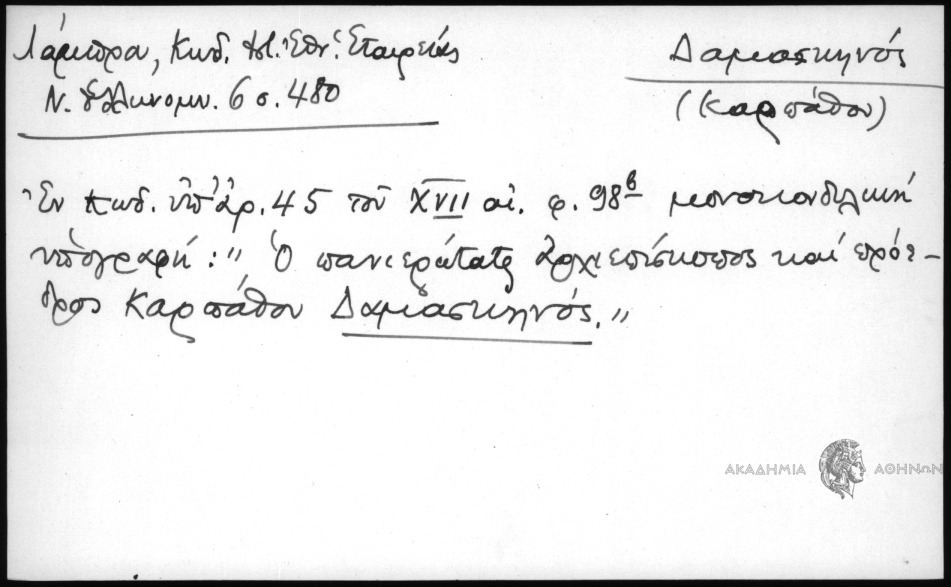 Λάμπρου, Κωδ. Ἱστ. Ἐθν. Ἑταιρείας
Ν. Ἑλληνομν. 6 σ. 480
Δαμασκηνός
(Καρπάθου)
Ἐν κωδ. ὑπ' ἀρ. 45 τοῦ XVII αἰ. φ. 98β μονοκονδυλική
ὑπογραφή: " Ὁ πανιερώτατς ἀρχιεπίσκοπος καί πρόε-
δρος Καρπάθου Δαμασκηνός. "
ΑΚΑΔΗΜΙΑ ΑΘΗΝΩΝ